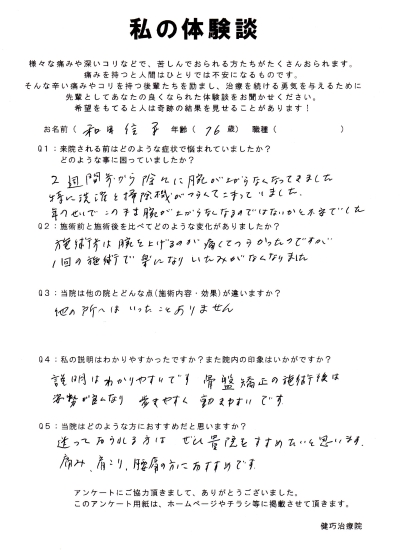 私の体験談
様々な痛みや深いコリなどで、苦しんでおられる方たちがたくさんおられます。
痛みを持つと人間はひとりでは不安になるものです。
そんな辛い痛みやコリを持つ後輩たちを励まし、治療を続ける勇気を与えるために
先輩としてあなたの良くなられた体験談をお聞かせください。
希望をもてると人は奇跡の結果を見せることがあります！
お名前（ 和田 年齢（ 76 歳） 職種（ ）
Q1：来院される前はどのような症状で悩まれていましたか？
どのような事に困っていましたか？
2週間前から 腕が上がらなくなってきました
特に洗濯と掃除機がつらくてこまっていました。
年のせいでこのまま腕が上がらなくなるのではないかと不安でした
Q2：施術前と施術後を比べてどのような変化がありましたか？
施術前は腕を上げるのが痛くてつらかったのですが
1回の施術で楽になり いたみがなくなりました
Q3：当院は他の院とどんな点(施術内容・効果)が違いますか？
他の所へは いったことありません
Q4：私の説明はわかりやすかったですか？また院内の印象はいかがですか？
説明はわかりやすいです 骨盤矯正の施術後は
姿勢が良くなり 歩きやすく 動きやすいです
Q5：当院はどのような方におすすめだと思いますか？
迷っておられる方は ぜひ貴院をすすめたいと思います。
痛み、肩こり、腰痛の方におすすめです。
アンケートにご協力頂きまして、ありがとうございました。
このアンケート用紙は、ホームページやチラシ等に掲載させて頂きます。
健巧治療院